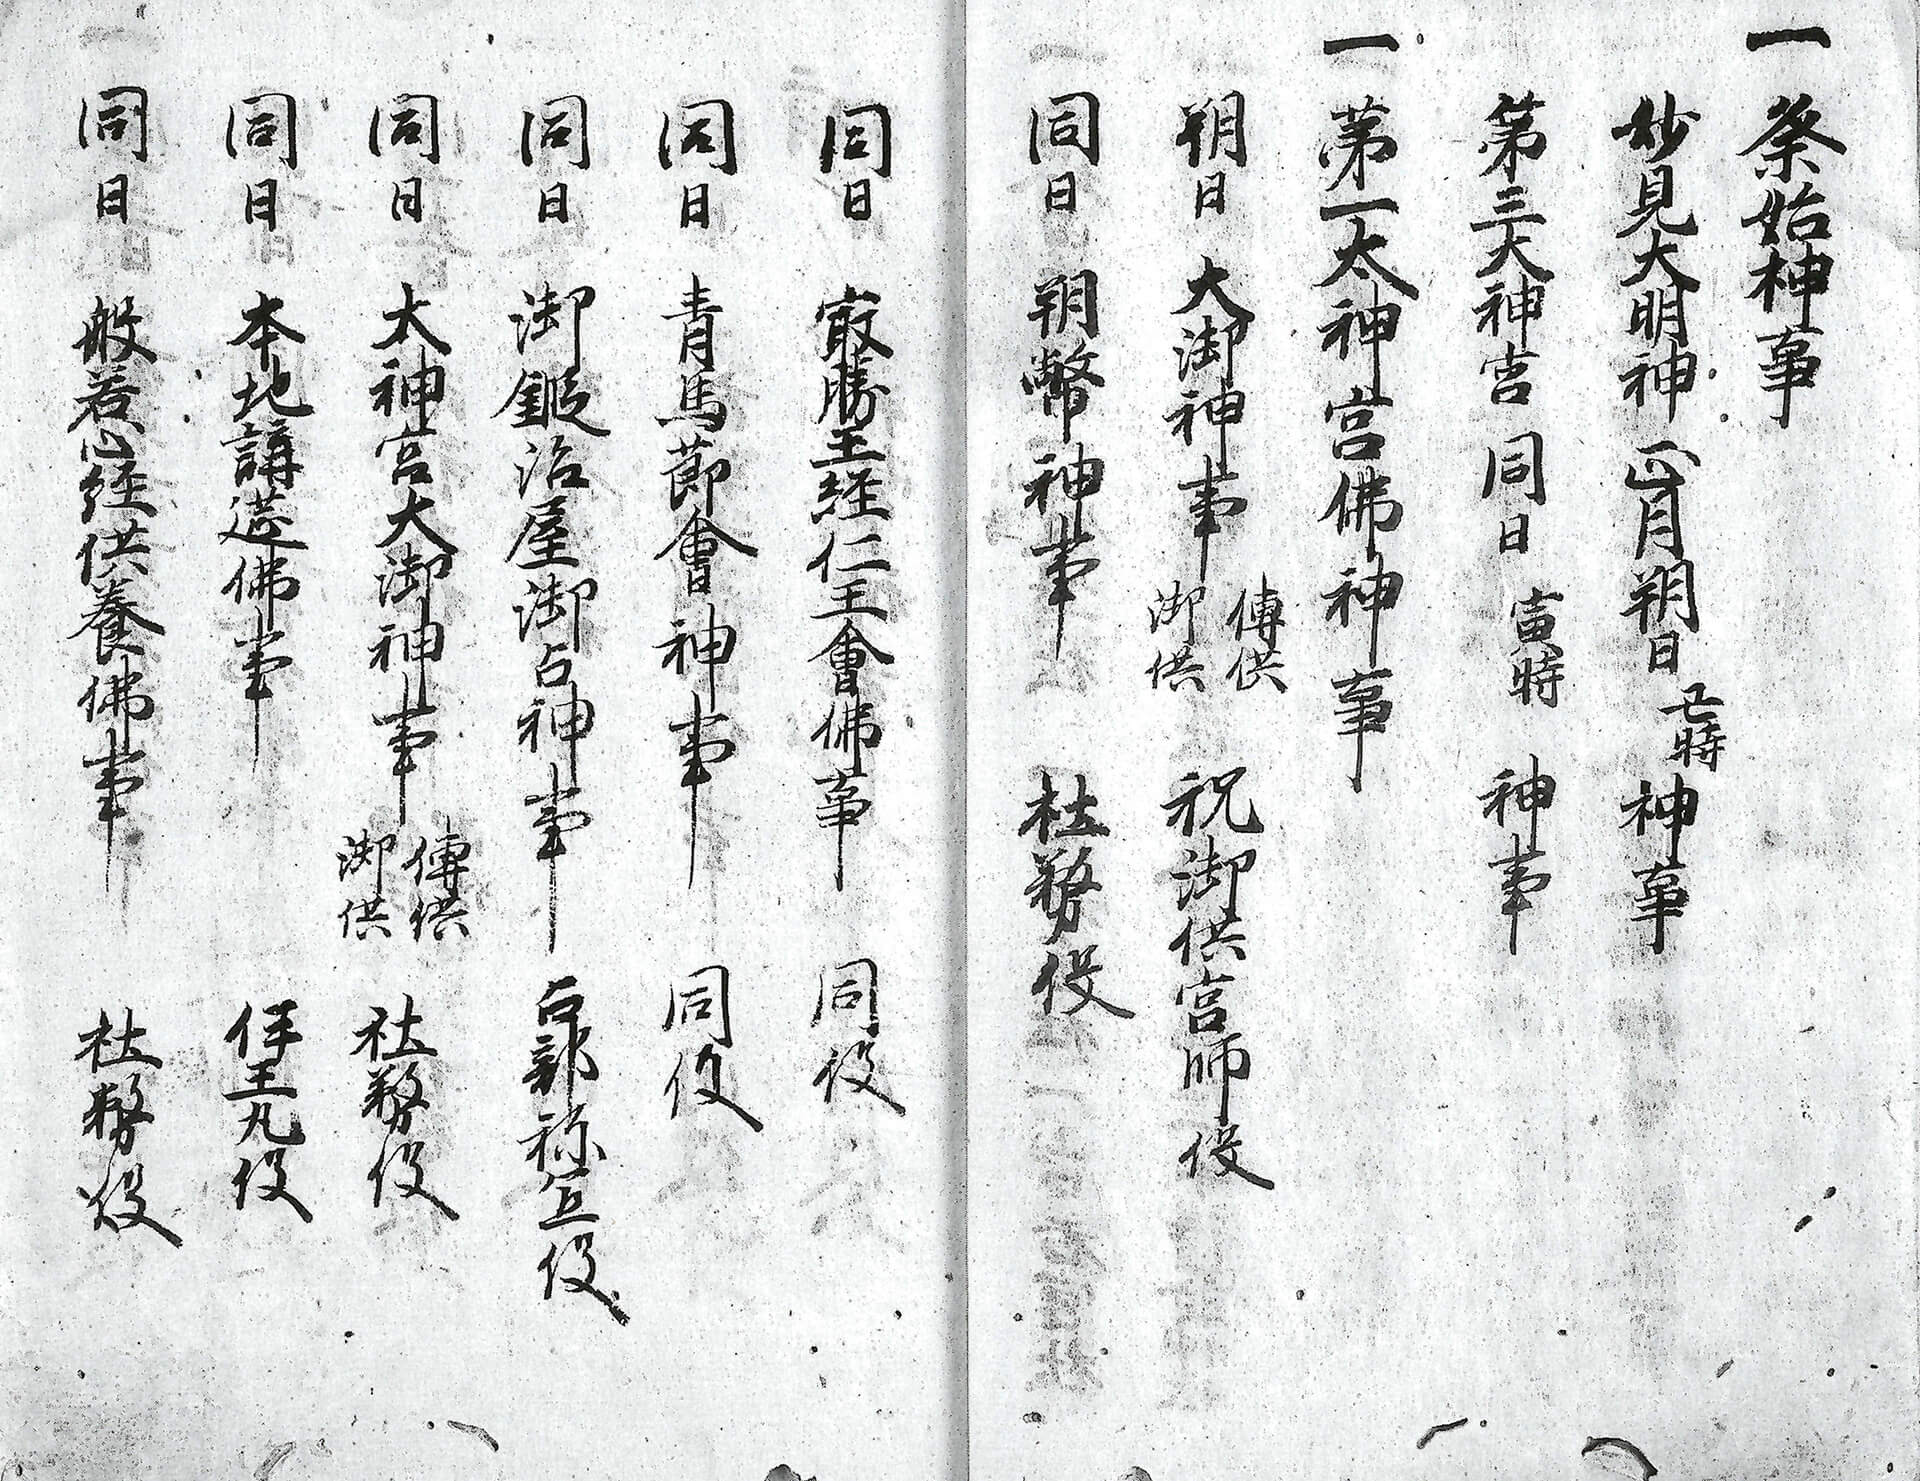 一祭始神事
妙見大明神正月朔日丑時神事
第三大神宮同日寅時神事
一第一太神宮佛神事
朔日大御神事傳供御供祝御供宮師役
同日朔幣神事社務役
同日最勝王経仁王會佛事同役
同日青馬節會神事同役
同日御鍛冶屋御占神事占部弥五役
同日太神宮大御神事傳供御供社務役
同日本地講莚佛事伊王丸役
同日般若心経供養佛事社務役